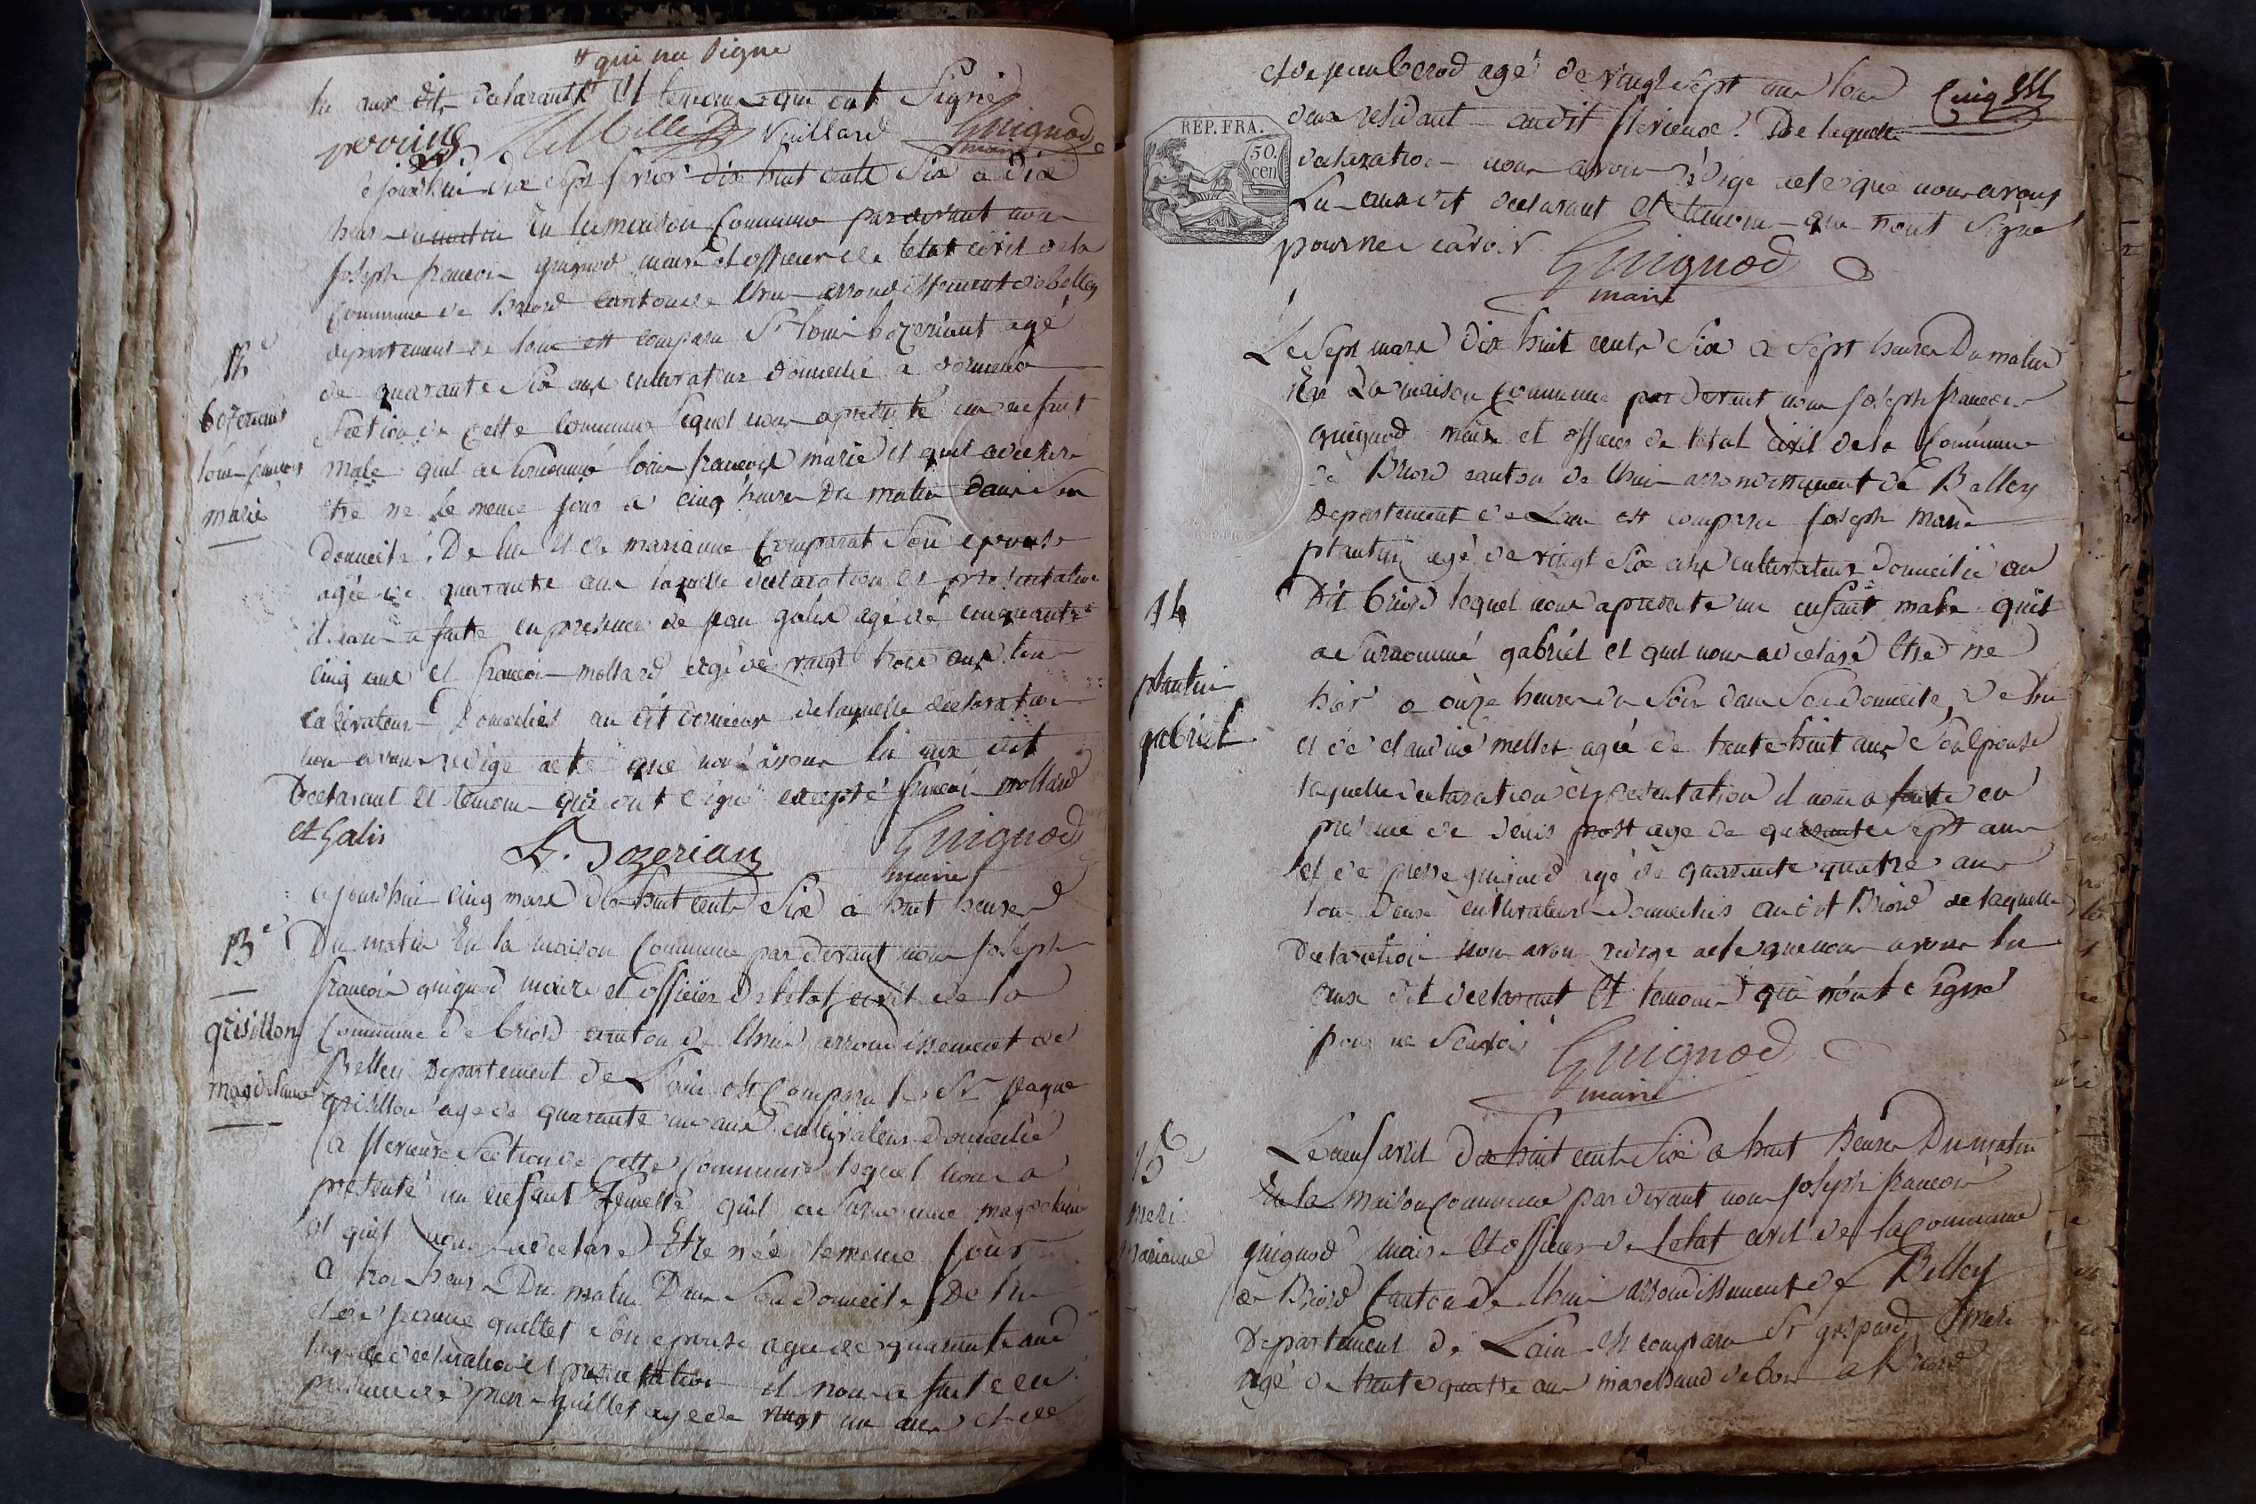 # qui na Signe
lu aux dit declarants et temoins qui ont Signé
Vuillard Guignod
maire
ce jourdhui dix sept fevrier dix huit cents Six a dix
heures du matin En la maison Commune par devant nous
Joseph francois guignod maire et officier de letat civil de la
Commune de Briord canton de lhuis arrondissement de belley
departement de lain est comparu Sr louis bozeriant agé
de quarante Six ans cultivateur domicilié a
Section de cette Commune lequel nous a presenté un enfant
bozeriant
louis francois
marie
male quil a Surnommé louis francois marie et quil a declaré
etre né le meme jour a cinq heures du matin dans Son
domicile. De lui et de marianne Comparat Son epouse
agée de quarante ans laquelle declaration et presentation
il nous a faite en presence de jean galis agé de cinquante
cinq ans et francois mollard agé de vingt trois ans tous
cultivateurs Domiciliés au dit de laquelle declaration
nous avons redigé acte que nous avons lu aux dit
Declarant et temoins qui ont Signé excepté francois mollard
et Galis
L. Bozerian Guignod
maire
13e
grisillon
magdelaine
cejourdhui cinq mars dix huit cents Six a huit heures
Du matin En la maison Commune par devant nous Joseph
francois guignod maire et officier de letat civil de la
Commune de briord canton de lhuis arrondissement de
Belley Departement de Lain est Comparu le Sr
grisillon agé de quarante un ans cultivateur domicilié
a flerieux Section de cette Commune lequel nous a
presenté un enfant femelle quil a Surnommé magdelaine
et quil nous a declaré Etre née le meme jour
a trois heures Du matin Dans Son domicile De lui
et de jeanne quillet Son epouse agée de quarante ans
laquelle declaration et presentation il nous a faite en
presence de quillet agé de vingt un ans et de
et de jean berod agé de vingt sept ans tous
Cinq
REP. FRA.
50.
cen
deux residant audit flerieux. De laquelle
declaration nous avons redigé acte que nous avons
Lu aux dit declarant et temoins que nont Signé
pour ne Savoir
Guignod
maire
Le Sept mars Dix huit cents Six a Sept heures Du matin
En La maison Commune par Devant nous Joseph francois
guignod maire et officier de letat civil de la Commune
de Briord canton de lhuis arrondissement de Belley
Departement de Lain est comparu Joseph Marie
plantin agé de vingt Six ans cultivateur Domicilié au
14
plantin
gabriel
Dit briord lequel nous a presenté un enfant male quil
a Surnommé gabriel et quil nous a declaré Etre né
hier a onze heures du Soir dans Son domicile, De lui
et de claudine mellet agée de trente huit ans Son Epouse
laquelle declaration et presentation il nous a faite en
presence de denis prost agé de quarante Sept ans
et de pierre guinard agé de quarante quatre ans
tous deux cultivateurs domiciliés au dit Briord de laquelle
Declaration nous avons redigé acte que nous avons lu
aux dit declarant et temoins qui nont Signé
pour ne Savoir
Guignod
maire
15e
meri
marianne
Le neuf avril Dix huit cents Six a huit heures Du matin
En la maison Commune par devant nous Joseph francois
guignod maire et officier de letat civil de la Commune
de Briord Canton de lhuis arrondissement de Belley
Departement de Lain est comparu Sr gaspard meri
agé de trente quatre ans marchand de bois a Briord